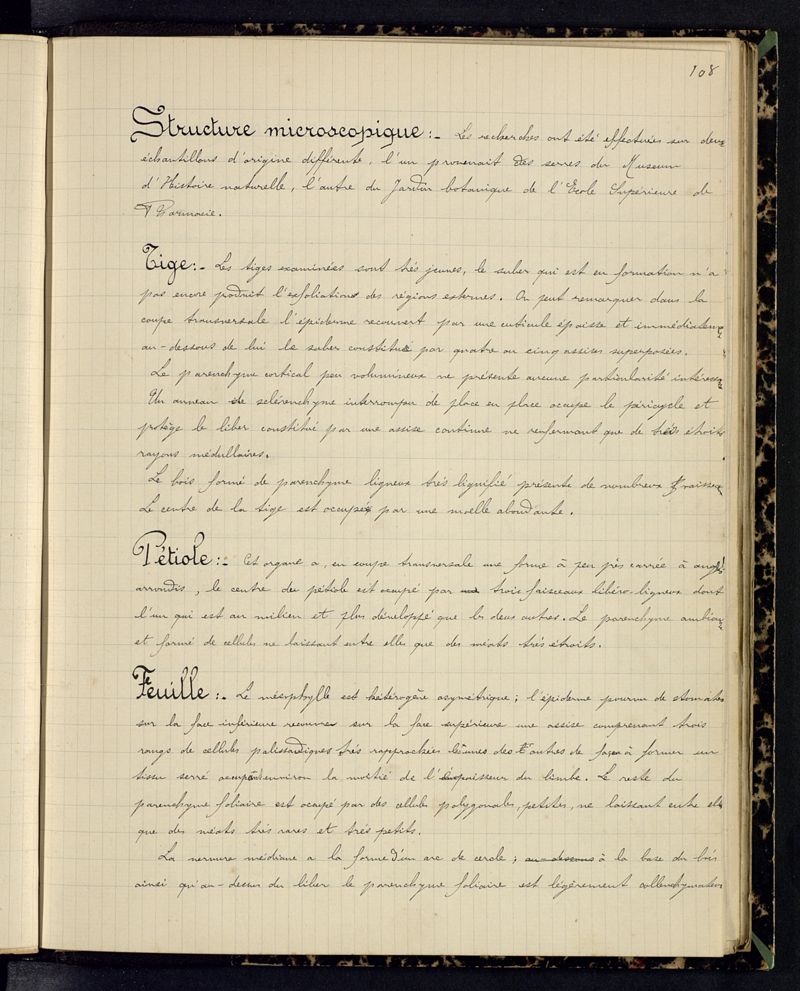 108
Structure microscopique :- Les recherches ont été effectuées sur deux
échantillons d'origine différente, l'un provenait des serres du Museum
d'Histoire naturelle, l'autre du Jardin botanique de l'Ecole Supérieure de
Pharmacie.
Tige :- Les tiges examinées sont très jeunes, le suber qui est en formation n'a
pas encore produit l'exfoliation des régions externes. On peut remarquer dans la
coupe transversale l'épiderme recouvert par une cuticule épaisse et immédiatem
au-dessous de lui le suber constitué par quatre ou cinq assises superposées.
Le parenchyme cortical peu volumineux ne présente aucune particularité intéress
Un anneau de sclérenchyme interrompu de place en place occupe le péricycle et
protège le liber constitué par une assise continue ne renfermant que de très étroits
rayons médullaires.
Le bois formé de parenchyme ligneux très lignifié présente de nombreux vaisseux
Le centre de la tige est occupé par une moelle abondante.
Pétiole :- Cet organe a, en coupe transversale une forme à peu près carrée à angl
arrondis, le centre du pétiole est occupé par trois faisceaux libéro-ligneux dont
l'un qui est au milieu et plus développé que les deux autres. Le parenchyme ambian
et formé de cellules ne laissant entre elles que des méats très étroits.
Feuille :- Le mésophylle est hétérogène asymétrique ; l'épiderme pourvu de stomates
sur la face inférieure recouvre sur la face supérieure une assise comprenant trois
rangs de cellules palissadiques très rapprochées les unes des autres de façon à former un
tissu serré occupant environ la moitié de l'épaisseur du limbe. Le reste du
parenchyme foliaire est occupé par des cellules polygonales, petites, ne laissant entre ell
que des méats très rares et très petits.
La nervure médiane a la forme d'un arc de cercle ; au-dessous à la base du bois
ainsi qu'au-dessus du liber le parenchyme foliaire est légèrement collenchymateux